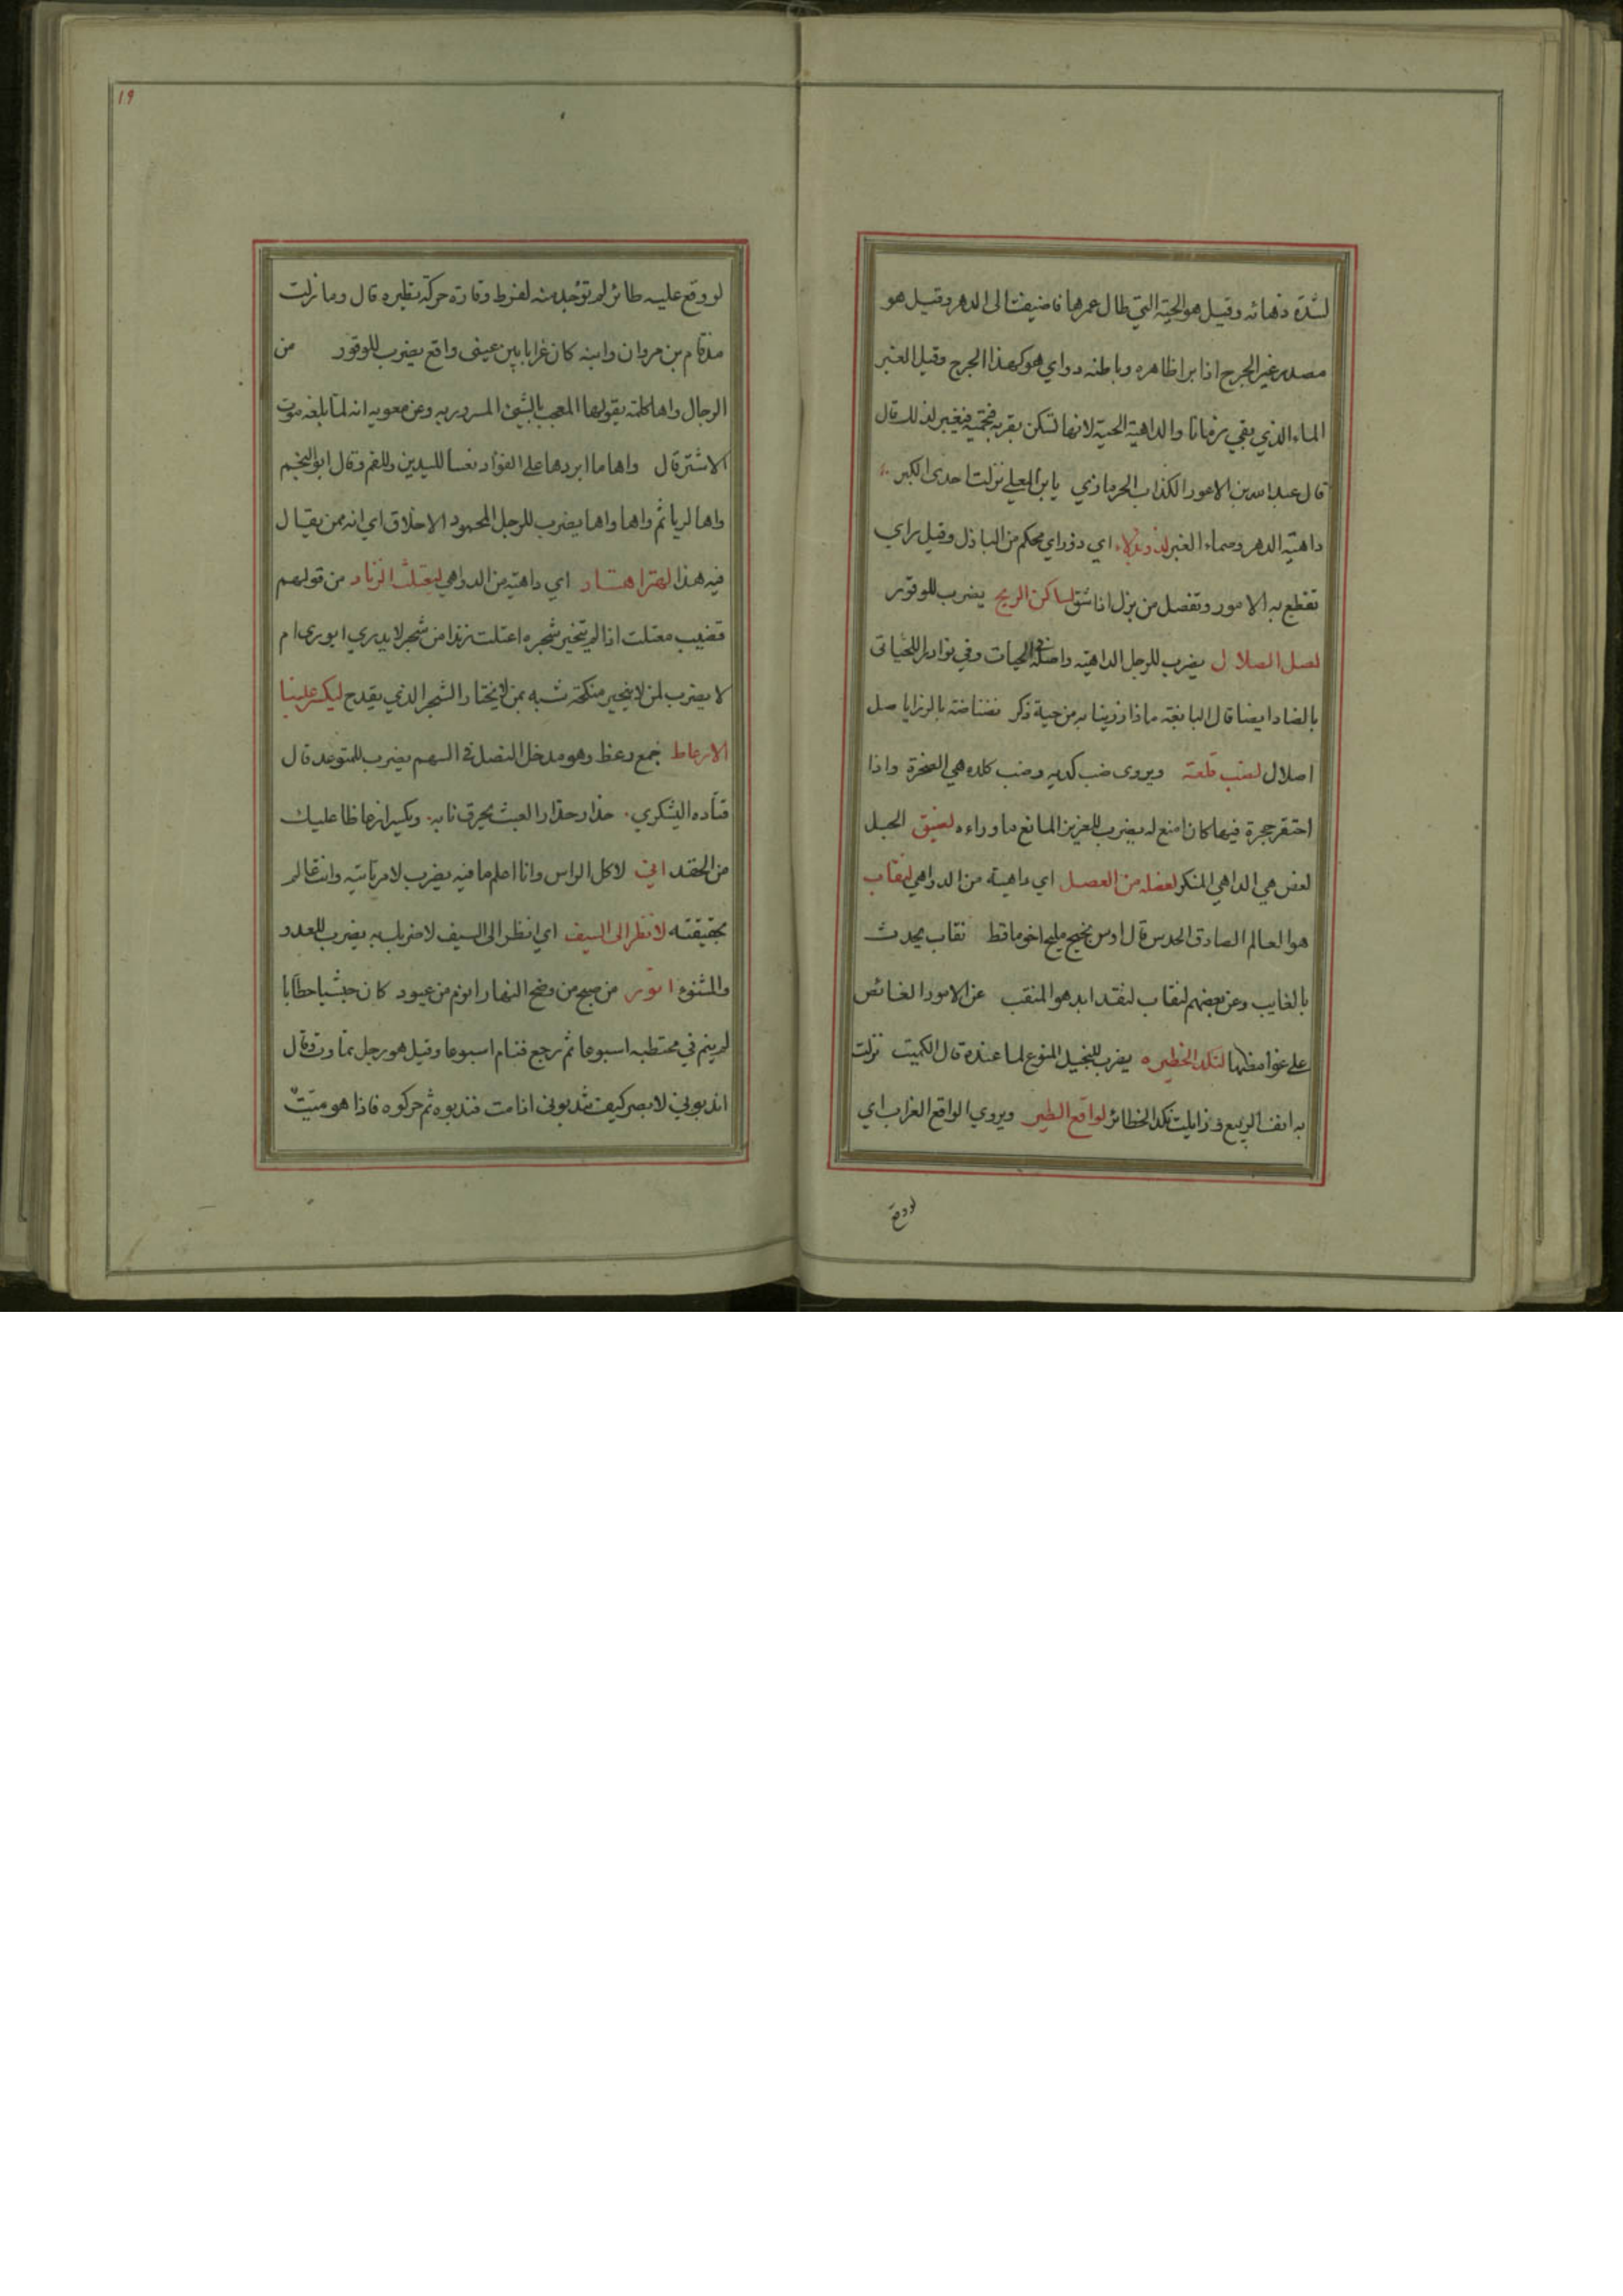 لشدة دهائه وقيل هو الحية التي طال عمرها فاضيفت الى الدهر وقيل هو
مصدر غبر الجرح اذا برا ظاهره وباطنه دواي هو كهذا الجرح وقيل الغبر
الماء الذي بقي زمانا والداهية الحية لانها تسكن بقربه فتحميه فيغبر لذلك قال
قال عبد الله بن الاعور الكذاب الحرمازي يا بن المعلى نزلت احدى الكبر
داهية الدهر وصماء الغبر لذو بزلاء اي ذو راي محكم من البازل وقيل براي
تقطع به الامور وتفصل من بزل اذا شق لساكن الريح يضرب للوقور
لصل اصلال يضرب للرجل الداهية واصله في الحيات وفي نوادر اللحياني
بالضاد ايضا قال النابغة ماذا رزينا به من حية ذكر نضناضة بالرزايا صل
اصلال لضب قلعة ويروى ضب كدية وضب كلده هي الصخرة واذا
احتفر حجرة فيها كان امنع له يضرب للعزيز المانع ما وراءه لضيق الحبل
لعض هي الداهي المنكر لعضلة من العضل اي داهية من الدواهي لنقاب
هو العالم الصادق الحدس قال اوس نجيح مليح اخو ماقط نقاب يحدث
بالغايب وعن بعضهم لنقاب لنقد ابد هو المنقب عن الامور الغائص
على غوامضها لنكد الحظيره يضرب للبخيل المنوع لما عنده قال الكميت نزلت
به انف الربيع وزايلت نكد الحظائر لواقع الطير ويروي الواقع الغراب اي
لو وقع
١٩
لو وقع عليه طائر لم توجد منه لفرط وقاره حركة تطيره قال وما زلت
مذقام بن مروان وابنه كان غرابا بين عيني واقع يضرب للوقور من
الرجال واها كلمة يقولها المعجب بالشيء المسرور به وعن معويه انه لما بلغه موت
الاشتر قال واها ما ابردها على الفؤاد تعسا لليدين وللفم وقال ابو النجم
واها لريا ثم واها واها يضرب للرجل المحمود الاخلاق اي انه ممن يقال
فيه هذا لهتر اهتار اي داهية من الدواهي ليعتلث الزناد من قولهم
قضيب معتلث اذا لم يتخير شجره اعتلث زندا من شجر لا يدري ايوري ام
لا يضرب لمن لا يتخير منكحة شبه بمن لا يختار الشجر الذي يقدح ليكسر علينا
الارعاظ جمع رعظ وهو مدخل النصل في السهم يضرب للمتوعد قال
قتاده اليشكري حذار حذار الليث يحرق نابه ويكسر ارعاظا عليك
من الحقد اني لاكل الراس وانا اعلم ما فيه يضرب لامر تاتيه وانت عالم
بحقيقته لانظر الى السيف اي انظر الى السيف لاضربك به يضرب للعدو
والمشنوء انور من صبح من وضح النهار انوم من عبود كان حبشيا حطابا
لم ينم في محتطبه اسبوعا ثم رجع فنام اسبوعا وقيل هو رجل تماوت وقال
اندبوني لابصر كيف تندبوني اذا مت فندبوه ثم حركوه فاذا هو ميت